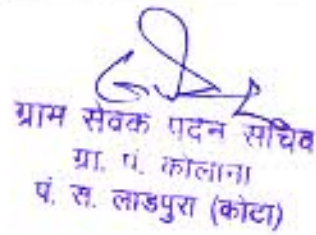 ग्राम सेवक पदेन सचिव
ग्रा. पं. कोलाना
पं. स. लाडपुरा (कोटा)